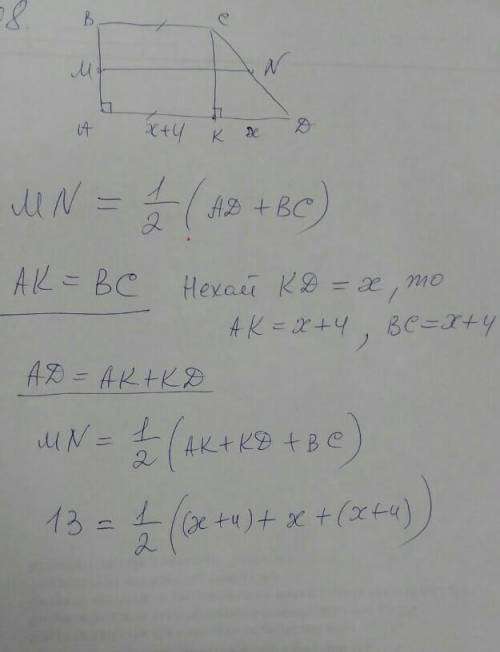 8.
B C
M N
A x+4 K x D
MN = 1/2 (AD + BC)
AK = BC Нехай KD = x, то
AK = x+4, BC = x+4
AD = AK+KD
MN = 1/2 (AK+KD+BC)
13 = 1/2 ((x+4)+x+(x+4))